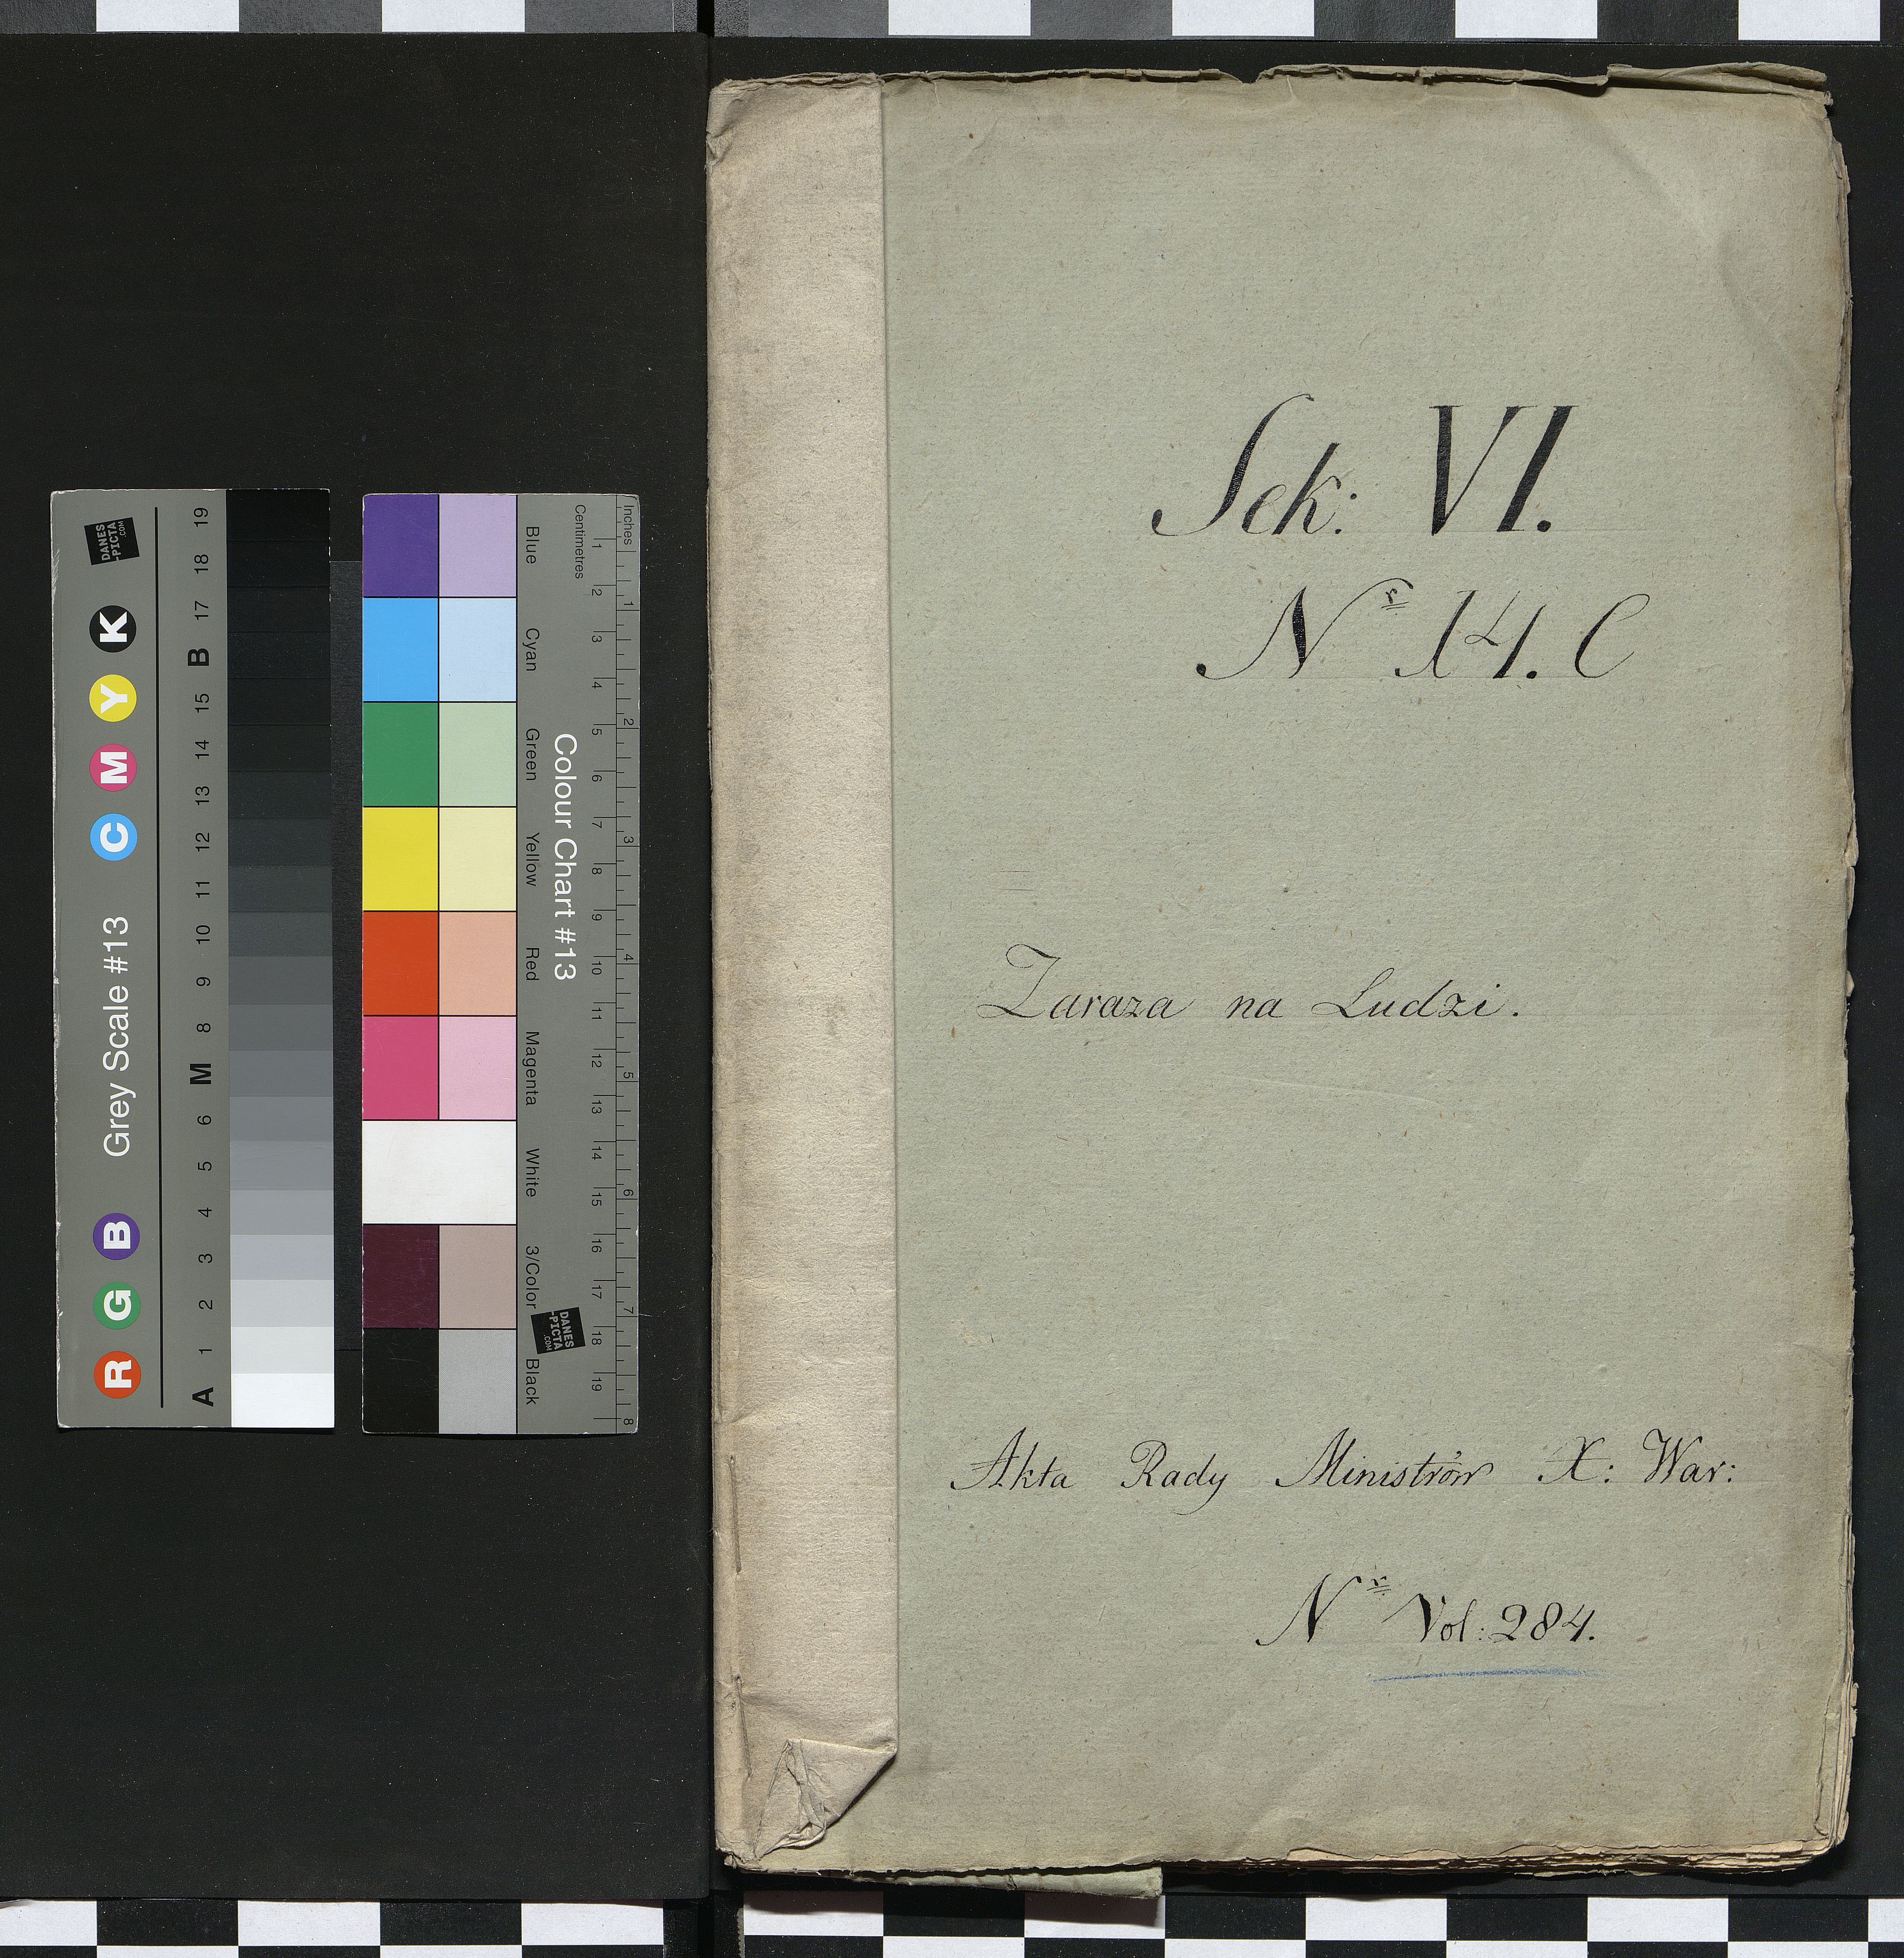 Sek: VI.
Nr 14. C
Zaraza na Ludzi.
Akta Rady Ministrów X: War:
Nr Vol: 284.
Grey Scale #13
R G B C M Y K
A 1 2 3 4 5 6 M 8 9 10 11 12 13 14 15 B 17 18 19
DANES
-PICTA
.COM
Colour Chart #13
Blue Cyan Green Yellow Red Magenta White 3/Color Black
Centimetres 1 2 3 4 5 6 7 8 9 10 11 12 13 14 15 16 17 18 19
Inches 1 2 3 4 5 6 7 8
DANES
-PICTA
.COM